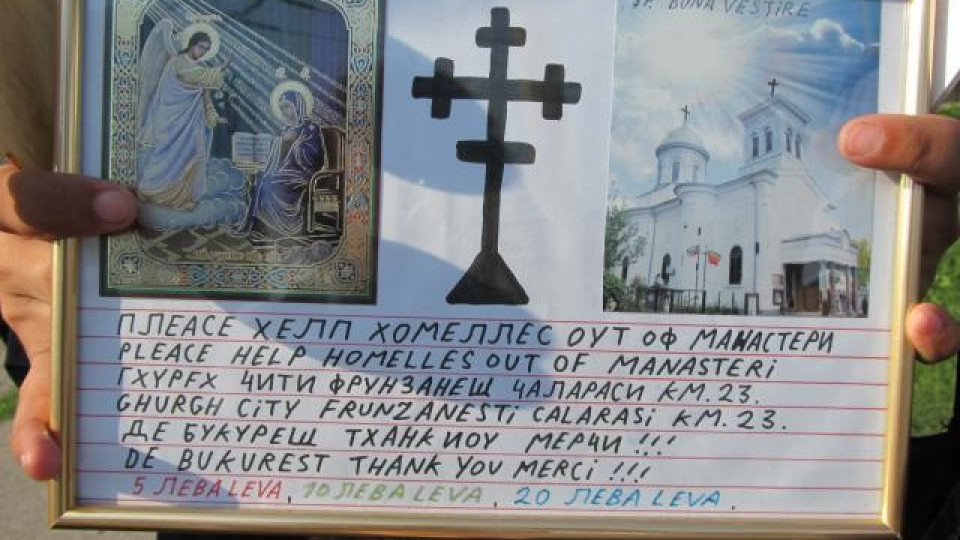 ST. BUNA VESTIRE
ПЛЕАСЕ ХЕЛП ХОМЕЛЛЕС ОУТ ОФ МАНАСТЕРИ
PLEACE HELP HOMELLES OUT OF MANASTERi
ГХУРГХ ЧИТИ ФРУНЗАНЕЩ ЧАЛАРАСИ КМ.23.
GHURGH CiTY FRUNZANESTi CALARASi KM.23.
ДЕ БУКУРЕЩ ТХАНК ИОУ МЕРЧИ !!!
DE BUKUREST THANK YOU MERCi !!!
5 ЛЕВА LEVA, 10 ЛЕВА LEVA, 20 ЛЕВА LEVA.